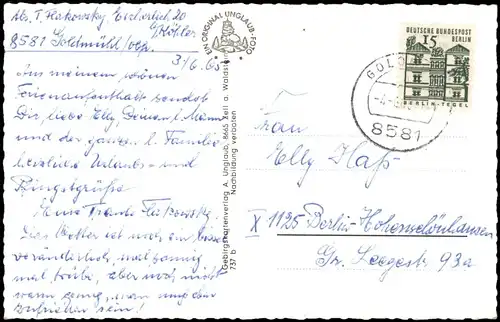 Abs. T. Flakowsky, Escherlich 20
b/Köhler
8581 Goldmühl/
3/6. 65
An meinem schönen
Ferienaufenthalt sendet
Dir, liebe Elly, Deinem l. Mann
und der ganzen l. Familie
herzliche Urlaubs- und
Pfingstgrüße
Eure Trude Flakowsky.
Das Wetter ist noch ein bissel
veränderlich, mal sonnig
mal trübe, aber noch nicht
warm genug, man muß aber
zufrieden sein!
EIN ORIGINAL UNGLAUB-FOTO
Gebirgskartenverlag A. Unglaub, 8665 Zell a. Waldstein
Nachbildung verboten
737 b
DEUTSCHE BUNDESPOST
BERLIN
15
BERLIN-TEGEL
GOLD
8581
Frau
Elly Haß
X 1125 Berlin-Hohenschönhausen
Gr. Leegestr. 93a